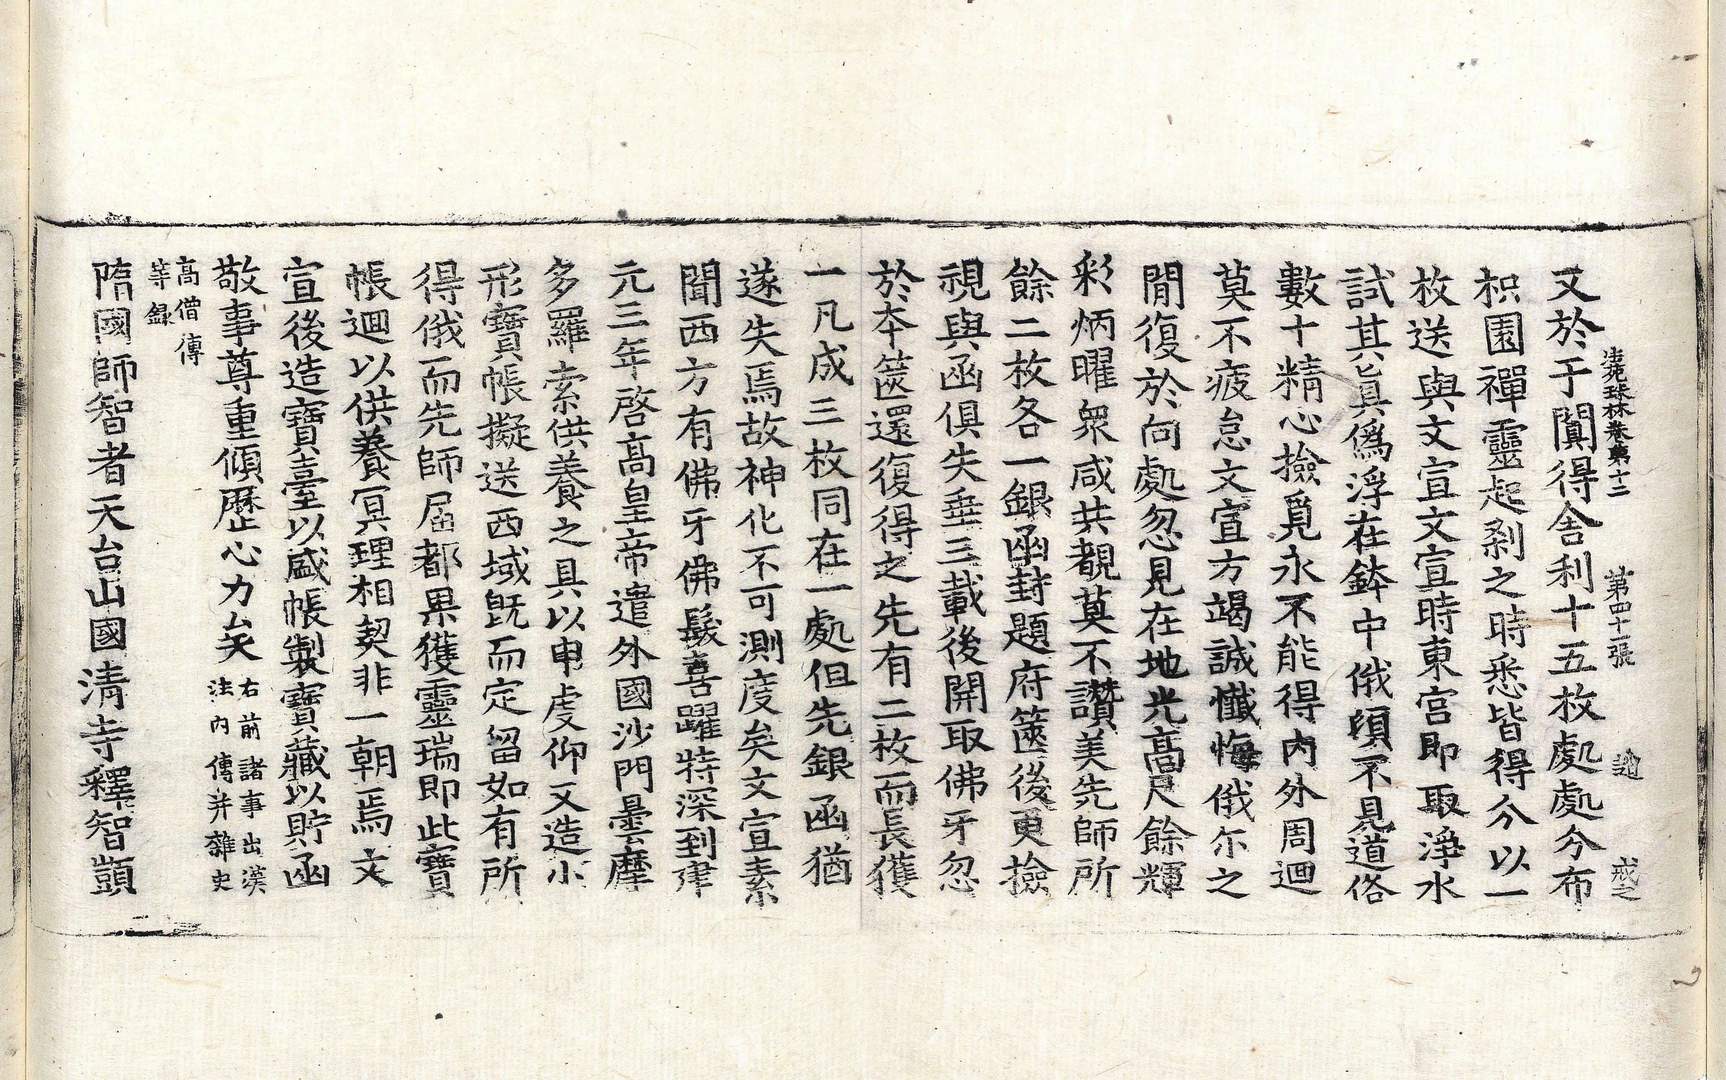 法苑珠林卷第十二 第四十二張 䢒 戒之
又於于闐得舍利十五枚處處分布
枳園禪靈起刹之時悉皆得分以一
枚送與文宣文宣時東宮即取淨水
試其真僞浮在鉢中俄頃不見道俗
數十精心撿覓永不能得內外周迴
莫不疲怠文宣方竭誠懺悔俄尒之
閒復於向處忽見在地光高尺餘輝
彩炳曜衆咸共覩莫不讚美先師所
餘二枚各一銀函封題府篋後更撿
視與函俱失垂三載後開取佛牙忽
於本篋還復得之先有二枚而長獲
一凡成三枚同在一處但先銀函猶
遂失焉故神化不可測度矣文宣素
聞西方有佛牙佛髮喜躍特深到建
元三年啓高皇帝遣外國沙門曇摩
多羅索供養之具以申虔仰又造小
形寶帳擬送西域旣而定留如有所
得俄而先師屆都果獲靈瑞即此寶
帳迴以供養冥理相契非一朝焉文
宣後造寶臺以盛帳製寶藏以貯函
敬事尊重傾歷心力矣 右前諸事出漢
法內傳并雜史
高僧傳
等錄
隋國師智者天台山國清寺釋智顗